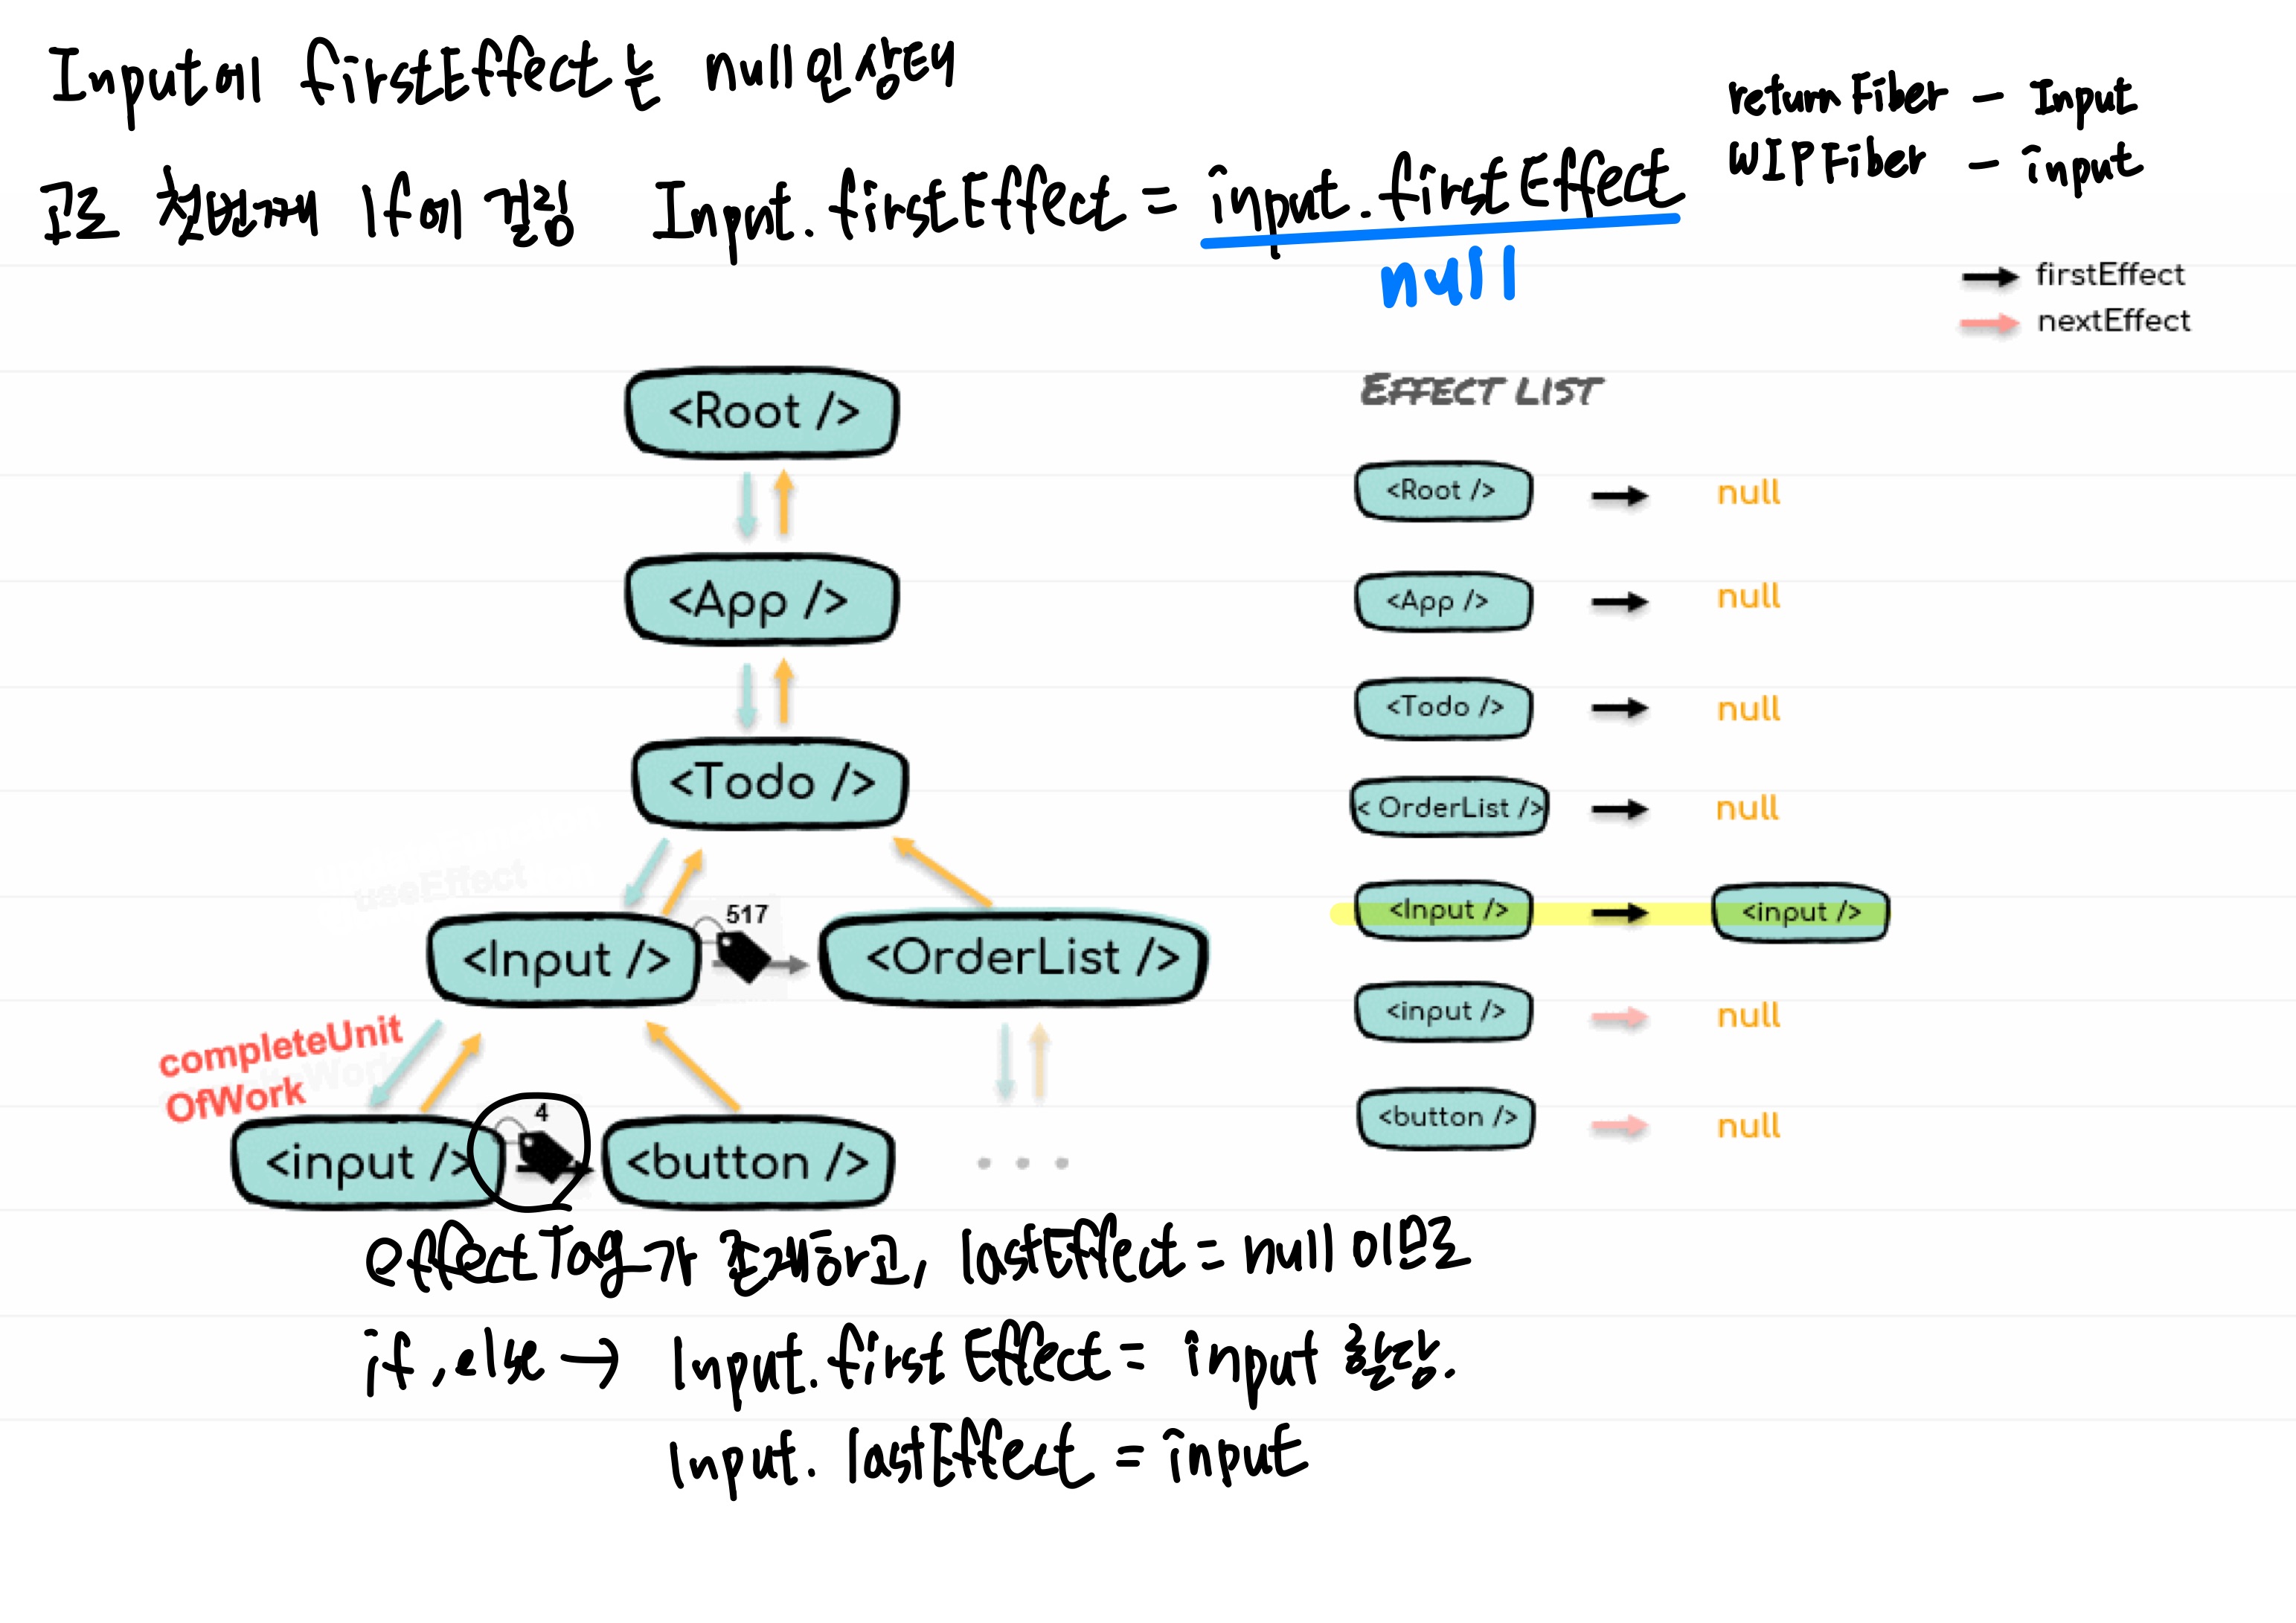 Input에 firstEffect는 null인상태
returnFiber - Input
WIPFiber - input
고로 첫번째 If에 걸림 Input.firstEffect = input.firstEffect
null
firstEffect
nextEffect
EFFECT LIST
<Root />
<App />
<Todo />
useEffect
<Input />
517
<OrderList />
completeUnit
OfWork
<input />
4
<button />
...
<Root /> null
<App /> null
<Todo /> null
< OrderList /> null
<Input /> <input />
<input /> null
<button /> null
effectTag가 존재하고, lastEffect = null 이므로
if, else → Input.firstEffect = input 할당.
Input. lastEffect = input